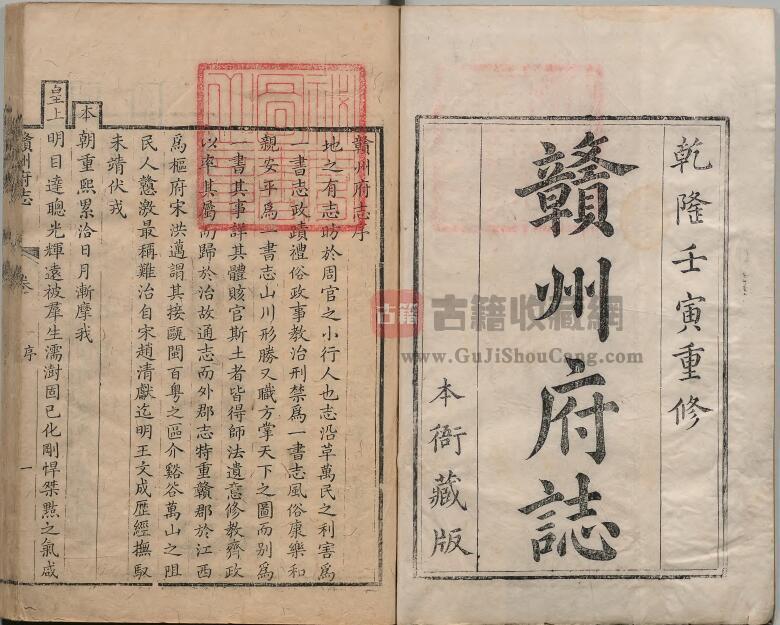 乾隆壬寅重修
贛州府誌
本衙藏版
贛州府志序
地之有志昉於周官之小行人也志沿革萬民之利害為
一書志政蹟禮俗政事教治刑禁為一書志風俗康樂和
親安平為一書志山川形勝又職方掌天下之圖而別為
一書其事詳其體賅官斯土者皆得師法遺意修教齊政
以率其屬而歸於治故通志而外郡志特重贛郡於江西
為樞府宋洪邁謂其接甌閩百粵之區介谿谷萬山之阻
民人戇激最稱難治自宋趙清獻迄明王文成歷經撫馭
未靖伏戎
本朝重熙累洽日月漸摩我
皇上明目達聰光輝遠被羣生濡澍固已化剛悍桀黠之氣咸
贛州府志
序
一
古籍 古籍收藏網
www.GuJiShouCang.com